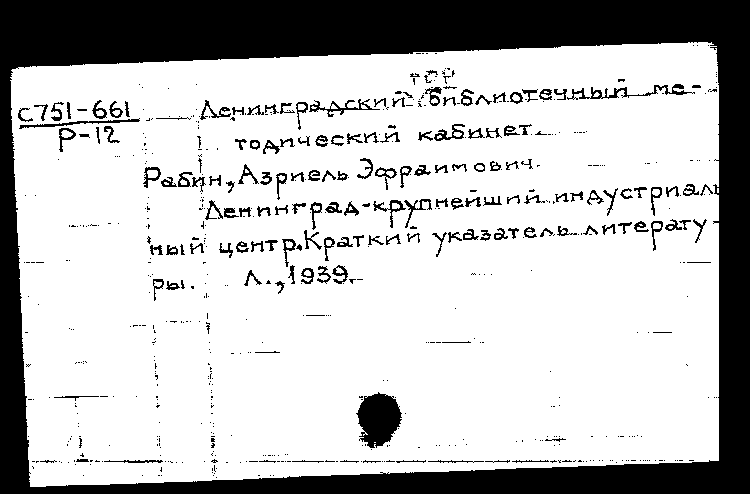 гор
С751-661
Р-12
Ленинградский библиотечный ме-
тодический кабинет.
Рабин, Азриель Эфраимович.
Ленинград-крупнейший индустриаль
ный центр. Краткий указатель литерату-
ры. Л., 1939.